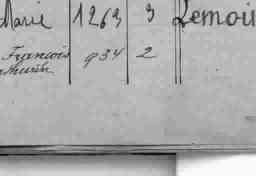 Marie 1263 3 Lemoi
François 934 2